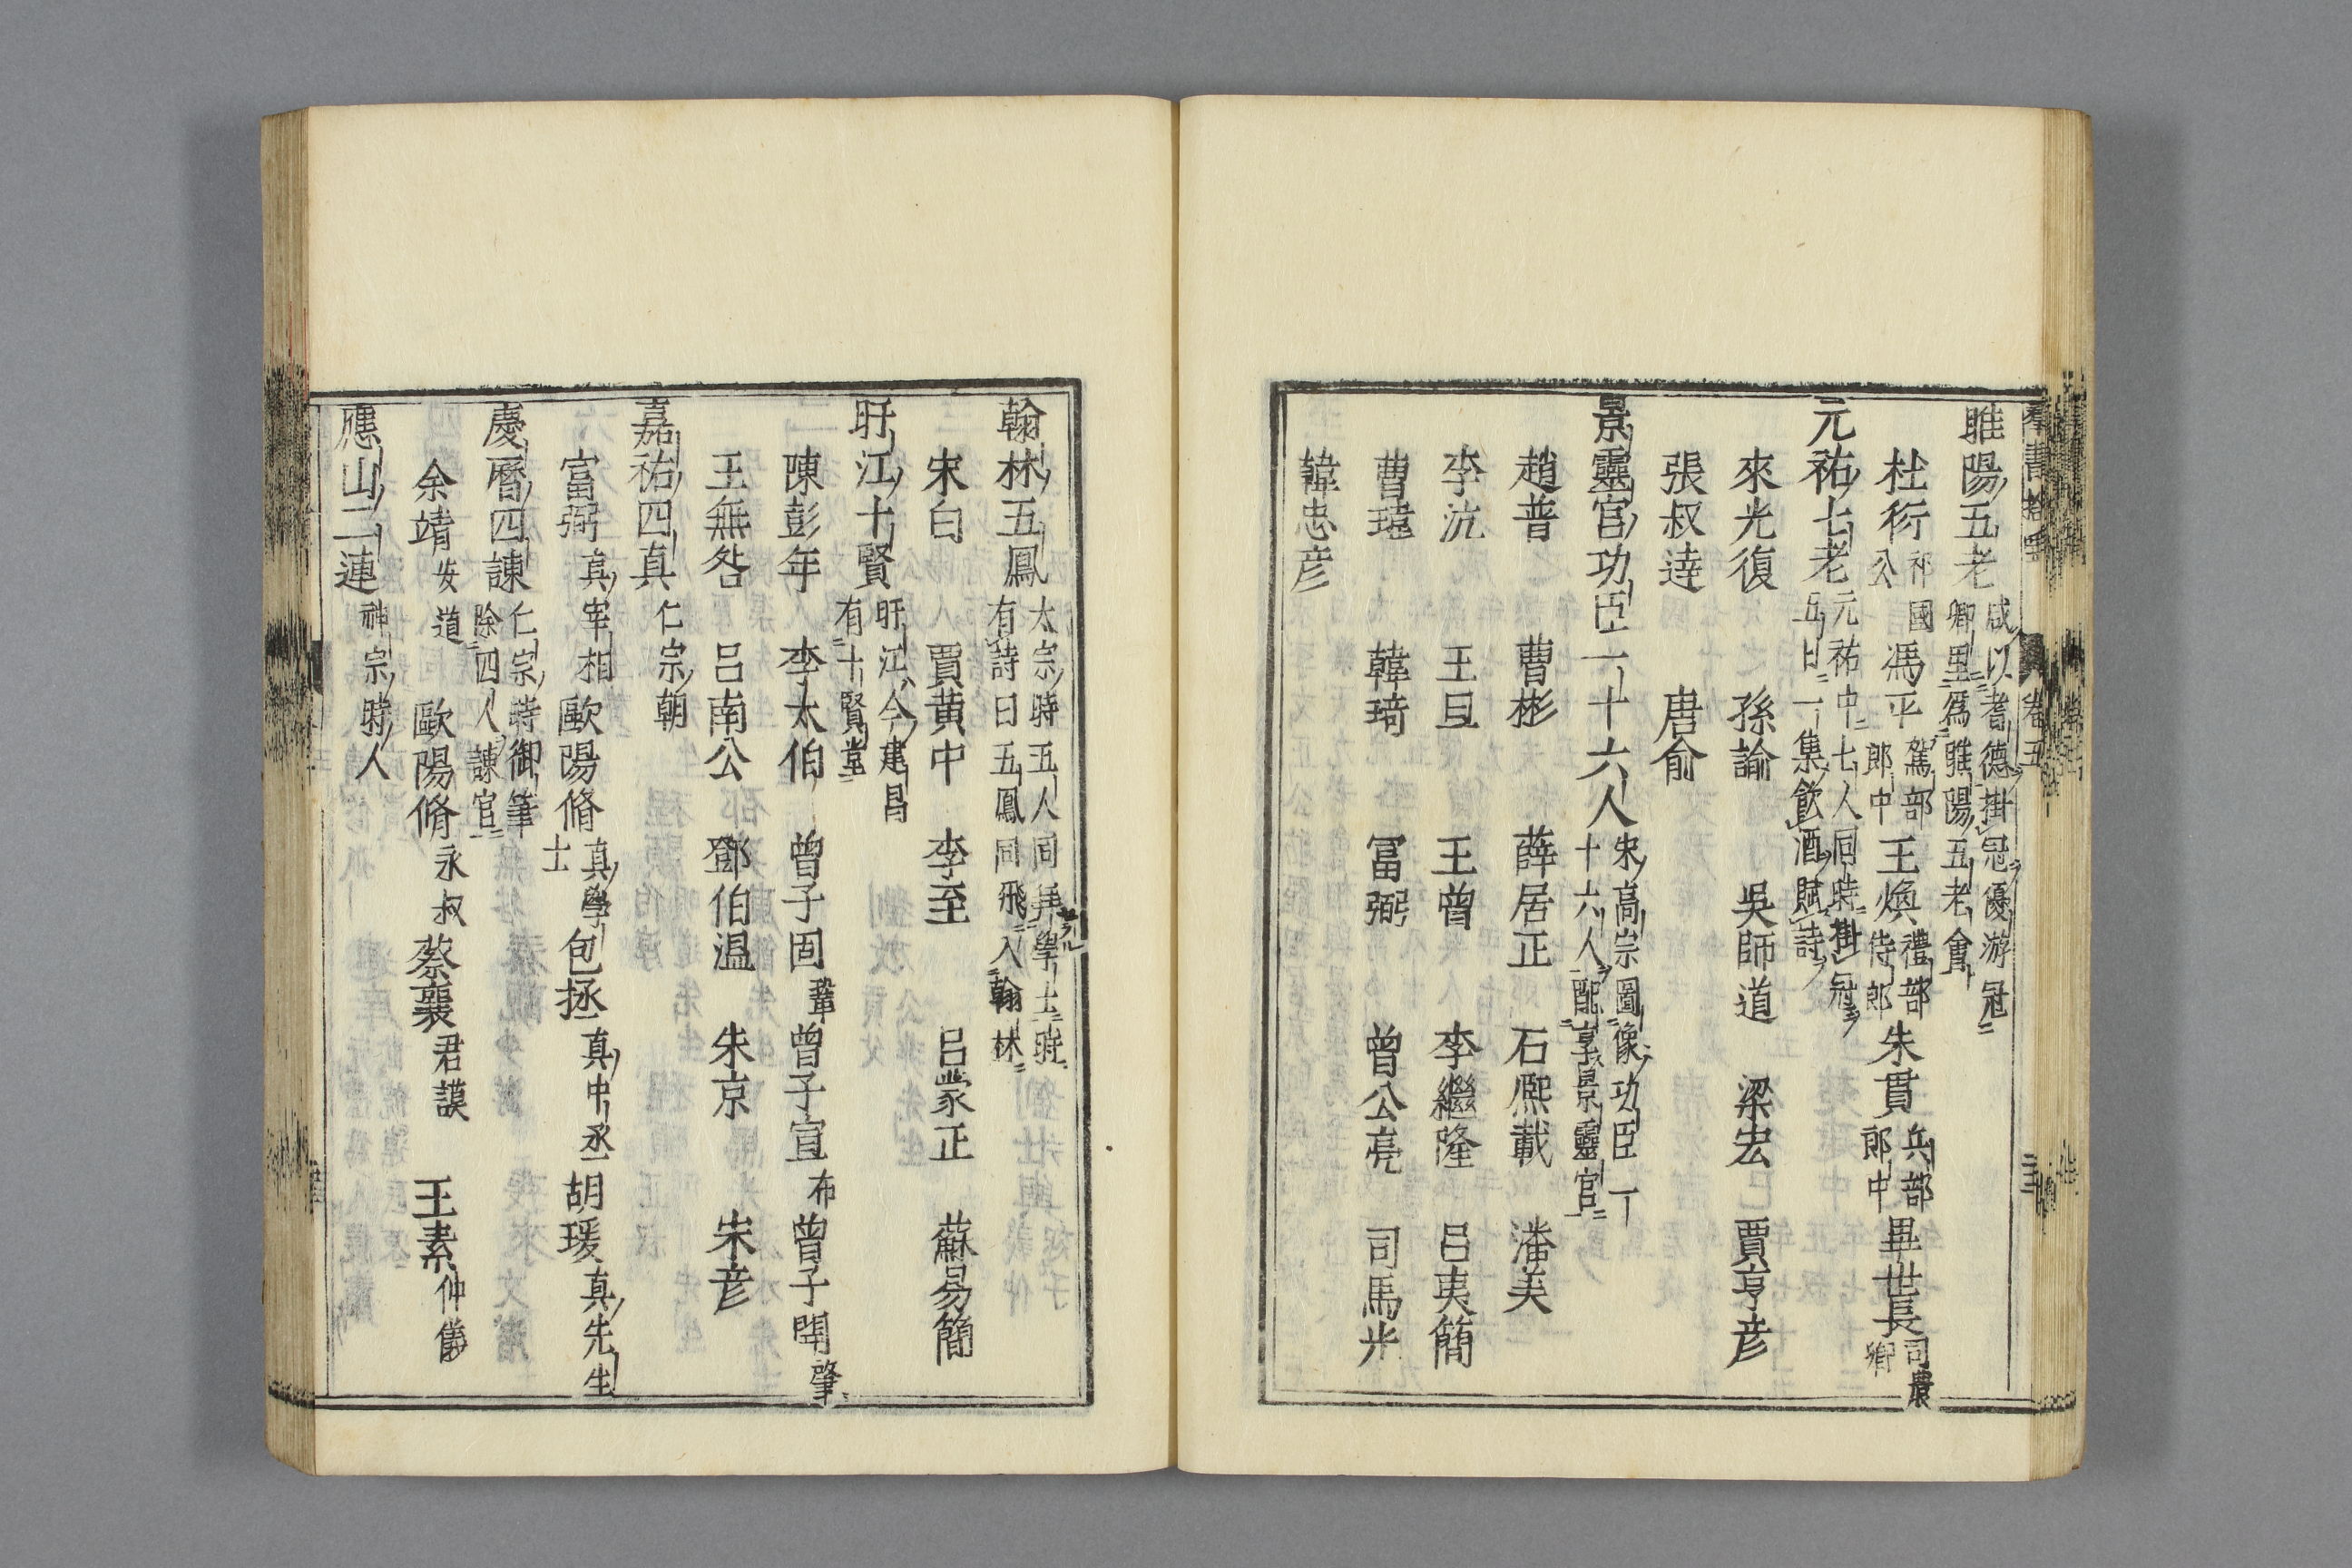 群書拾唾 卷五
睢陽五老 咸以耆德掛冠優游
卿里爲睢陽五老會
杜衍 祁國公 馮平 駕部郎中 王煥 禮部侍郎 朱貫 兵部郎中 畢世長 司農卿
元祐七老 元祐中七人同時掛冠
五日一集飲酒賦詩
來光復 孫諭 吳師道 梁宏 賈亨彦
張叔達 唐俞
景靈宮功臣一十六人 宋高宗圖像功臣一
十六人配享景靈宮
趙普 曹彬 薛居正 石熙載 潘美
李沆 王旦 王曾 李繼隆 呂夷簡
曹瑋 韓琦 冨弼 曾公亮 司馬光
韓忠彦
翰林五鳳 太宗時五人同拜學士時
有詩曰五鳳同飛入翰林
宋白 賈黄中 李至 呂蒙正 蘇易簡
盱江十賢 盱江今建昌
有十賢堂
陳彭年 李太伯 曾子固 鞏 曾子宣 布 曾子開 肇
王無咎 呂南公 鄧伯温 朱京 朱彦
嘉祐四真 仁宗朝
富弼 真宰相 歐陽脩 真學士 包拯 真中丞 胡瑗 真先生
慶曆四諫 仁宗時御筆
除四人諫官
余靖 安道 歐陽脩 永叔 蔡襄 君謨 王素 仲儀
應山二連 神宗時人